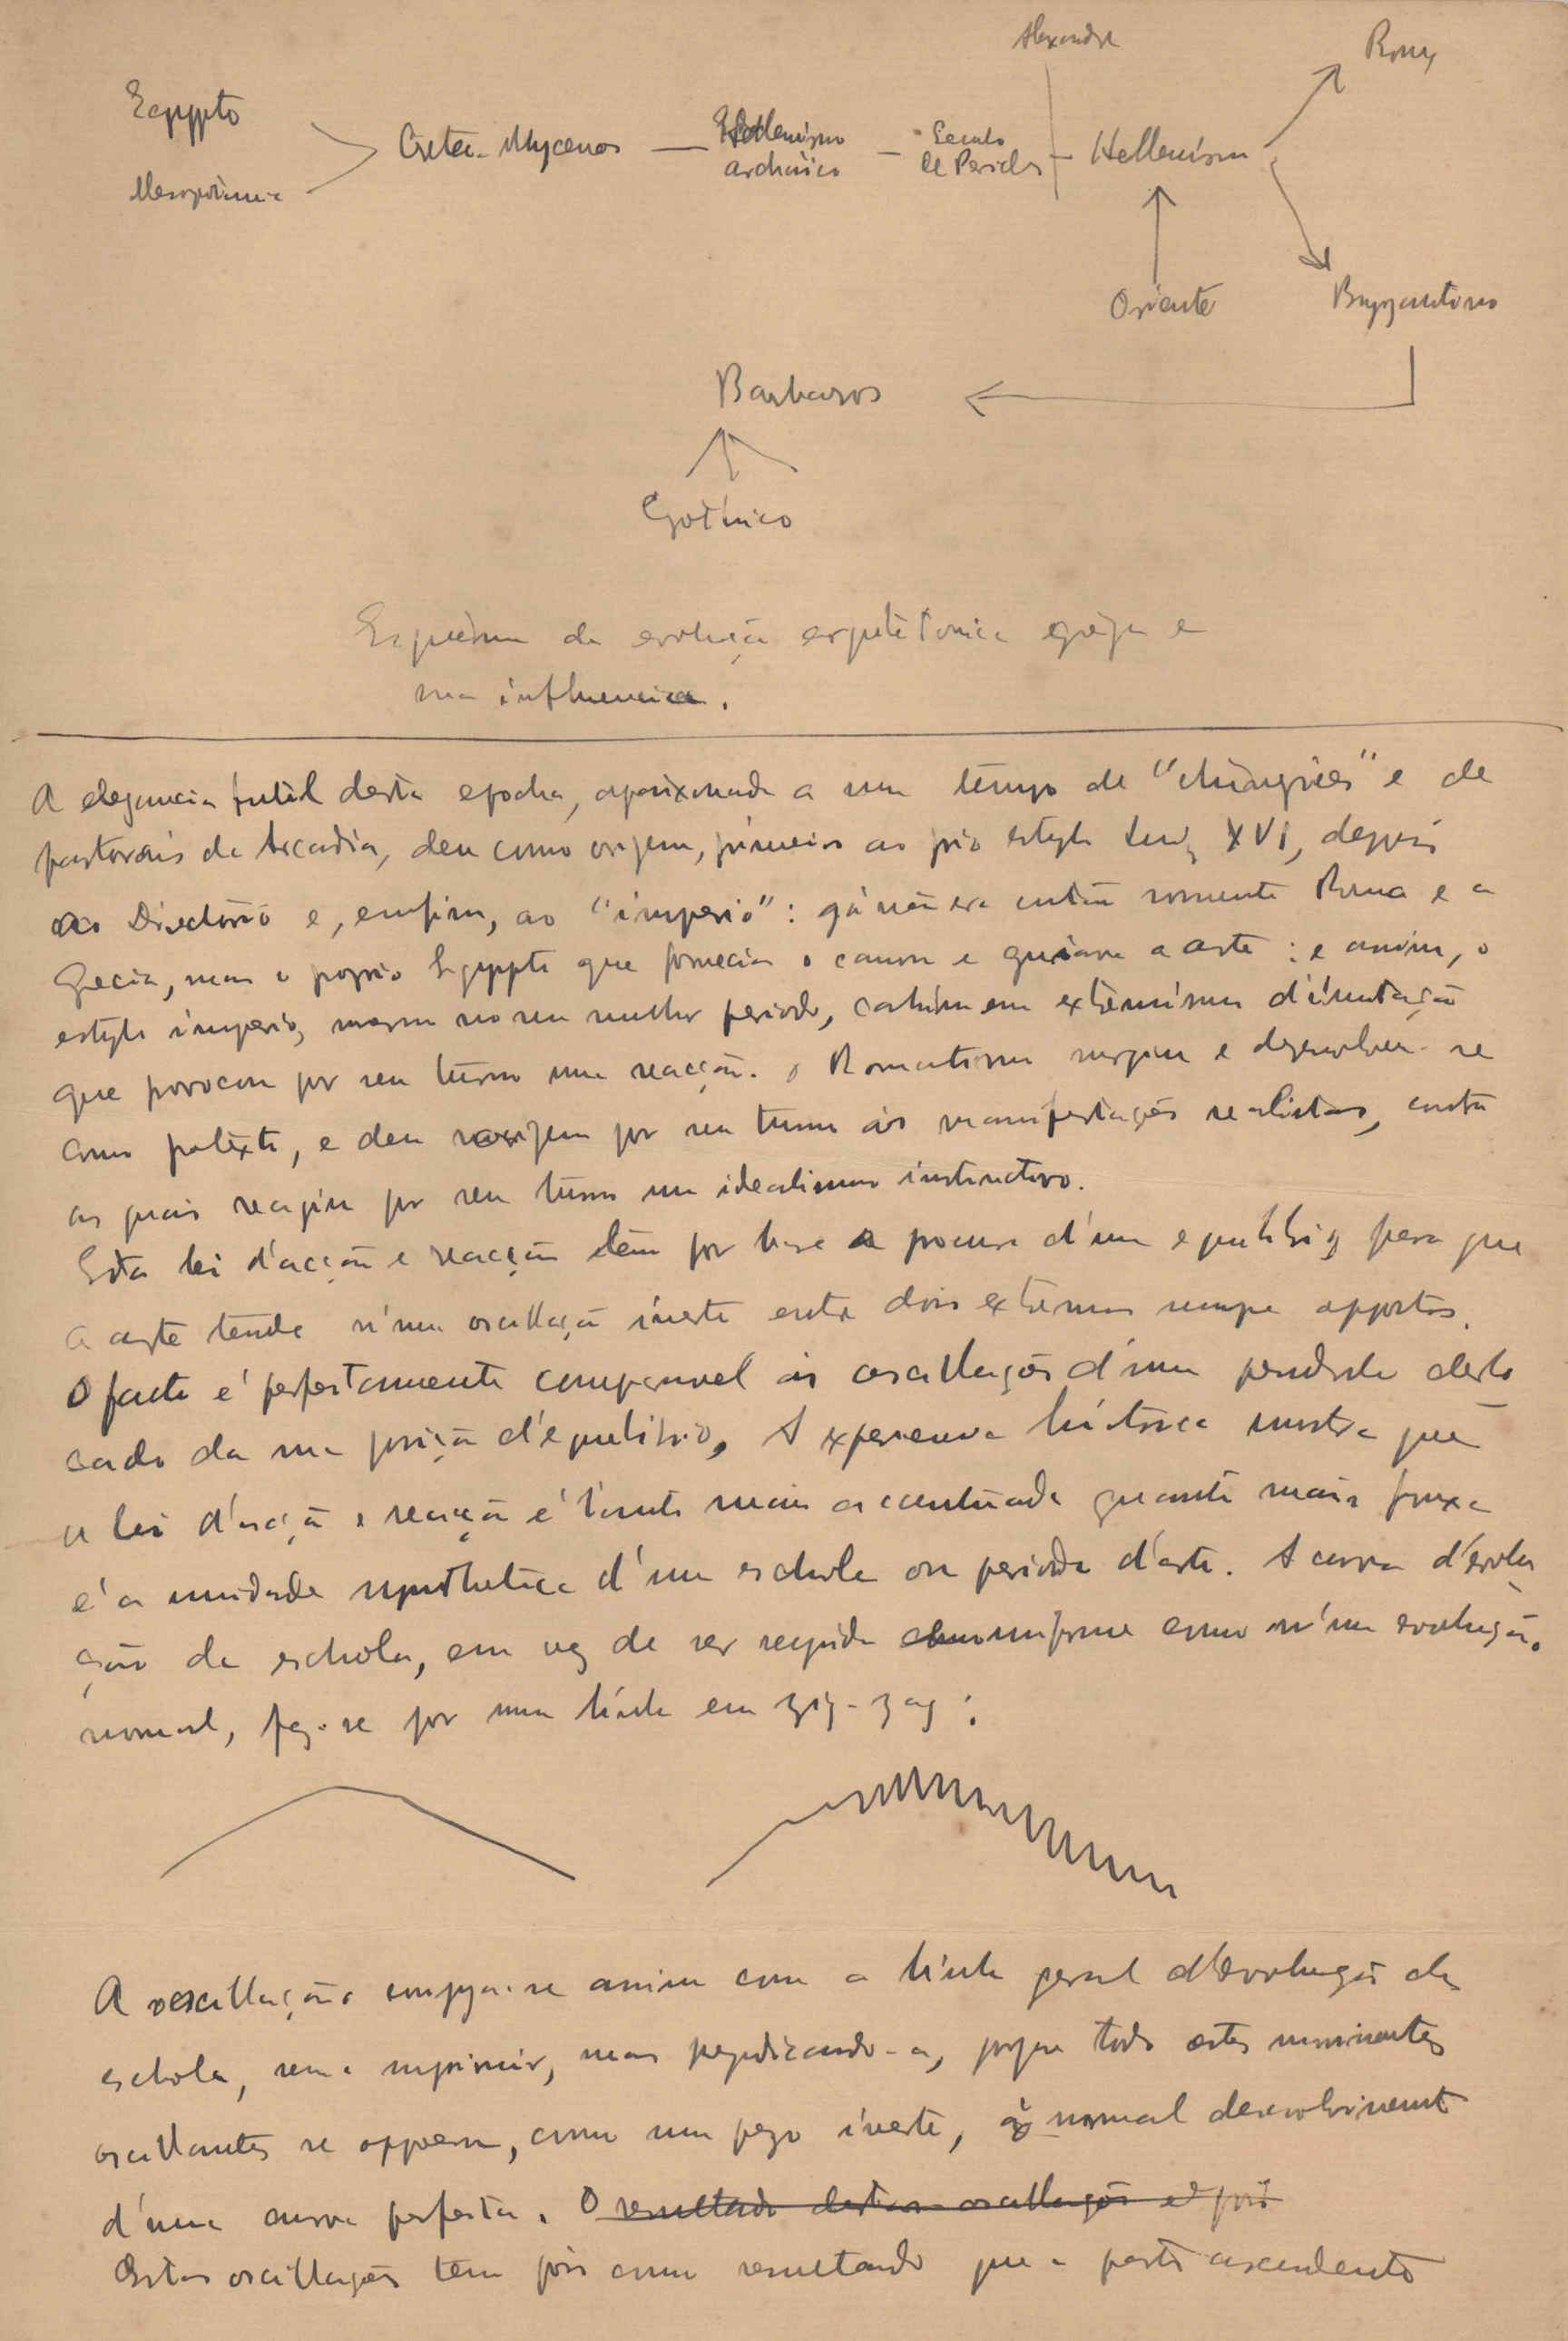 Alexandre
Roma
Egypto
Creta-Mycenas — Hellenismo — Seculo — Hellenismo
archaico de Pericles
Mesopotamia
Oriente
Byzantino
Barbaros
Gothico
Esquema da evolução arquitetonica grega e
sua influencia.
A elegancia futil desta epocha, apaixonada a um tempo de "chinoiseries" e de
pastorais da Arcadia, deu como origem, primeiro ao estylo Luiz XVI, depois
ao Directorio e, emfim, ao "imperio": já não era então somente Roma e a
Grecia, mas o proprio Egypto que fornecia o canon e guiava a arte: e assim, o
estylo imperio, mesmo no seu melhor periodo, cahiu em extremismos d'imitação
que provocou por seu turno uma reacção. o Romantismo surgiu e desenvolveu-se
como pretexto, e deu origem por seu turno ás manifestações realistas, contra
as quais reagiu por seu turno um idealismo instinctivo.
Esta lei d'acção e reacção têm por base a procura d'um equilibrio para que
a arte tende n'uma oscillação inerte entre dois extremos sempre oppostos.
O facto é perfeitamente comparavel ás oscillações d'um pendulo deslo
cado da sua posição d'equilibrio. A experiencia historica mostra que
a lei d'acção e reacção é tanto mais accentuada quanto mais frouxa
é a unidade synthetica d'uma eschola ou periodo d'arte. A curva d'evolu
ção da eschola, em vez de ser seguida uniforme como n'uma evolução
normal, faz-se por uma linha em zig-zag:
A oscillação compõe-se assim com a linha geral d'evolução da
eschola, sem a supprimir, mas prejudicando-a, porque todos estes movimentos
oscillantes se oppõem, como um pezo inerte, ao normal desenvolvimento
d'uma curva perfeita. O resultado destas oscillações é pois
Estas oscillações têm pois como resultado que a parte ascendente